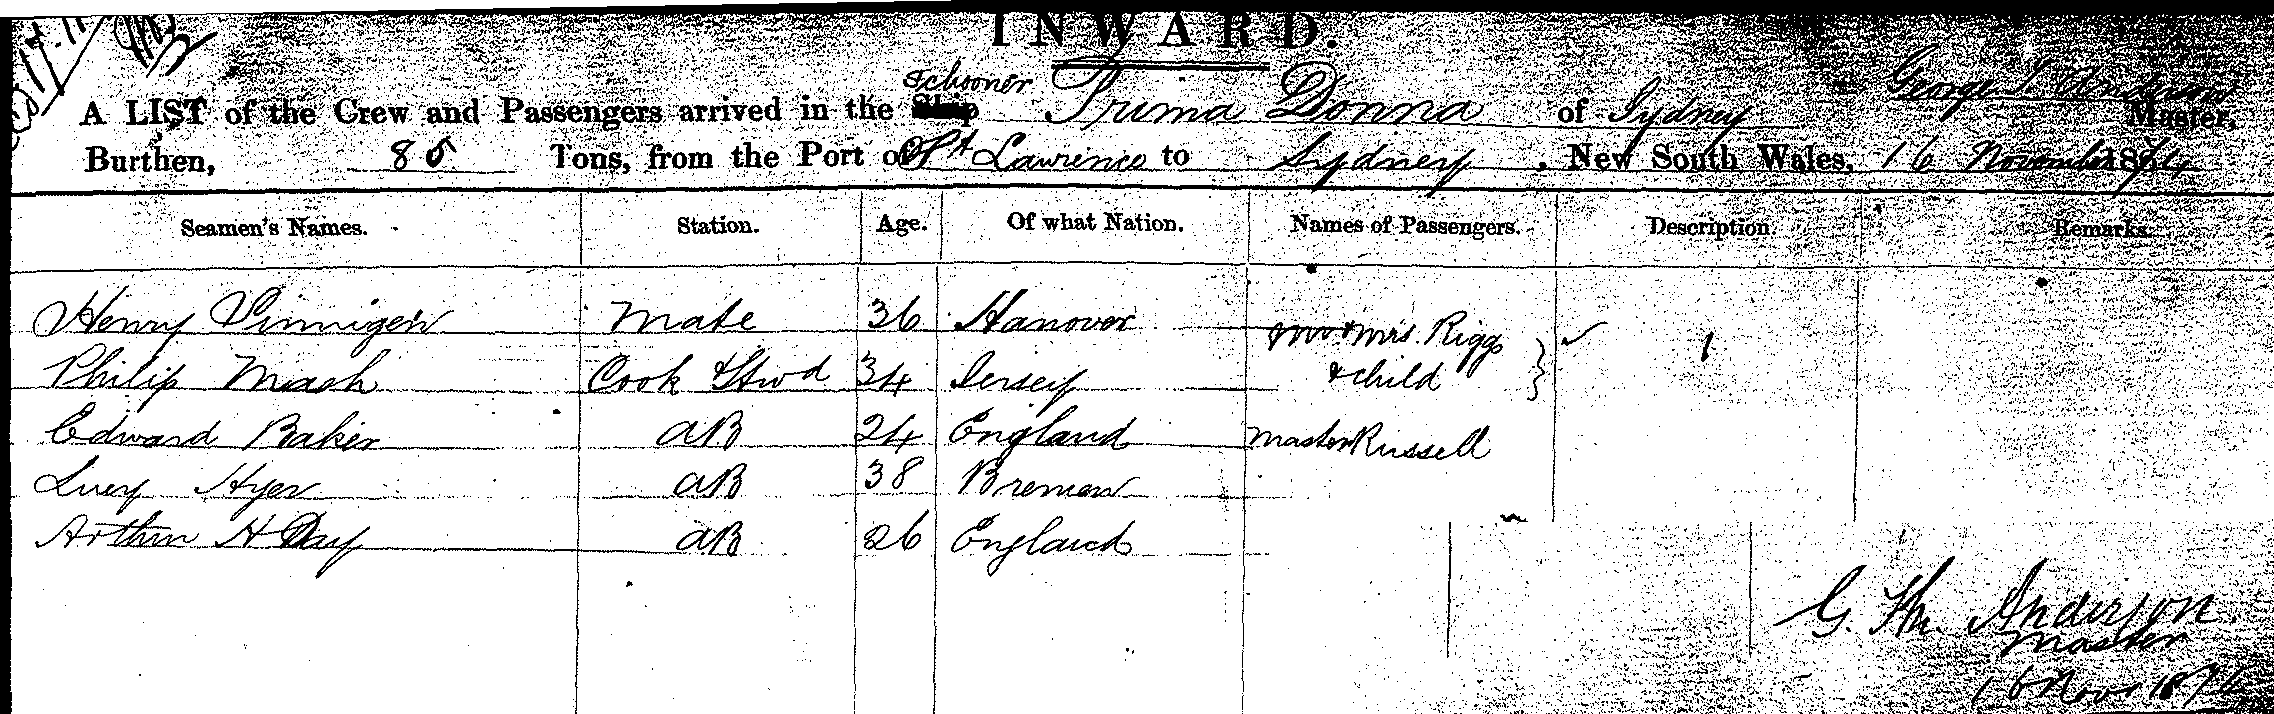 INWARD.
A LIST of the Crew and Passengers arrived in the Schooner Prima Donna of Sydney George Anderson Master,
Burthen, 85 Tons, from the Port of St Lawrence to Sydney, New South Wales, 16 November 187
Seamen's Names. Station. Age. Of what Nation. Names of Passengers. Description Remarks.
Henry Mate 36 Hanover Mr & Mrs. Riggs 1
Philip Mash Cook & Stwd 34 Jersey & child
Edward Baker AB 24 England Master Russell
Hyer AB 38 Bremen
Arthur H Day AB 26 England
G. Anderson.
Master
16 Nov 187